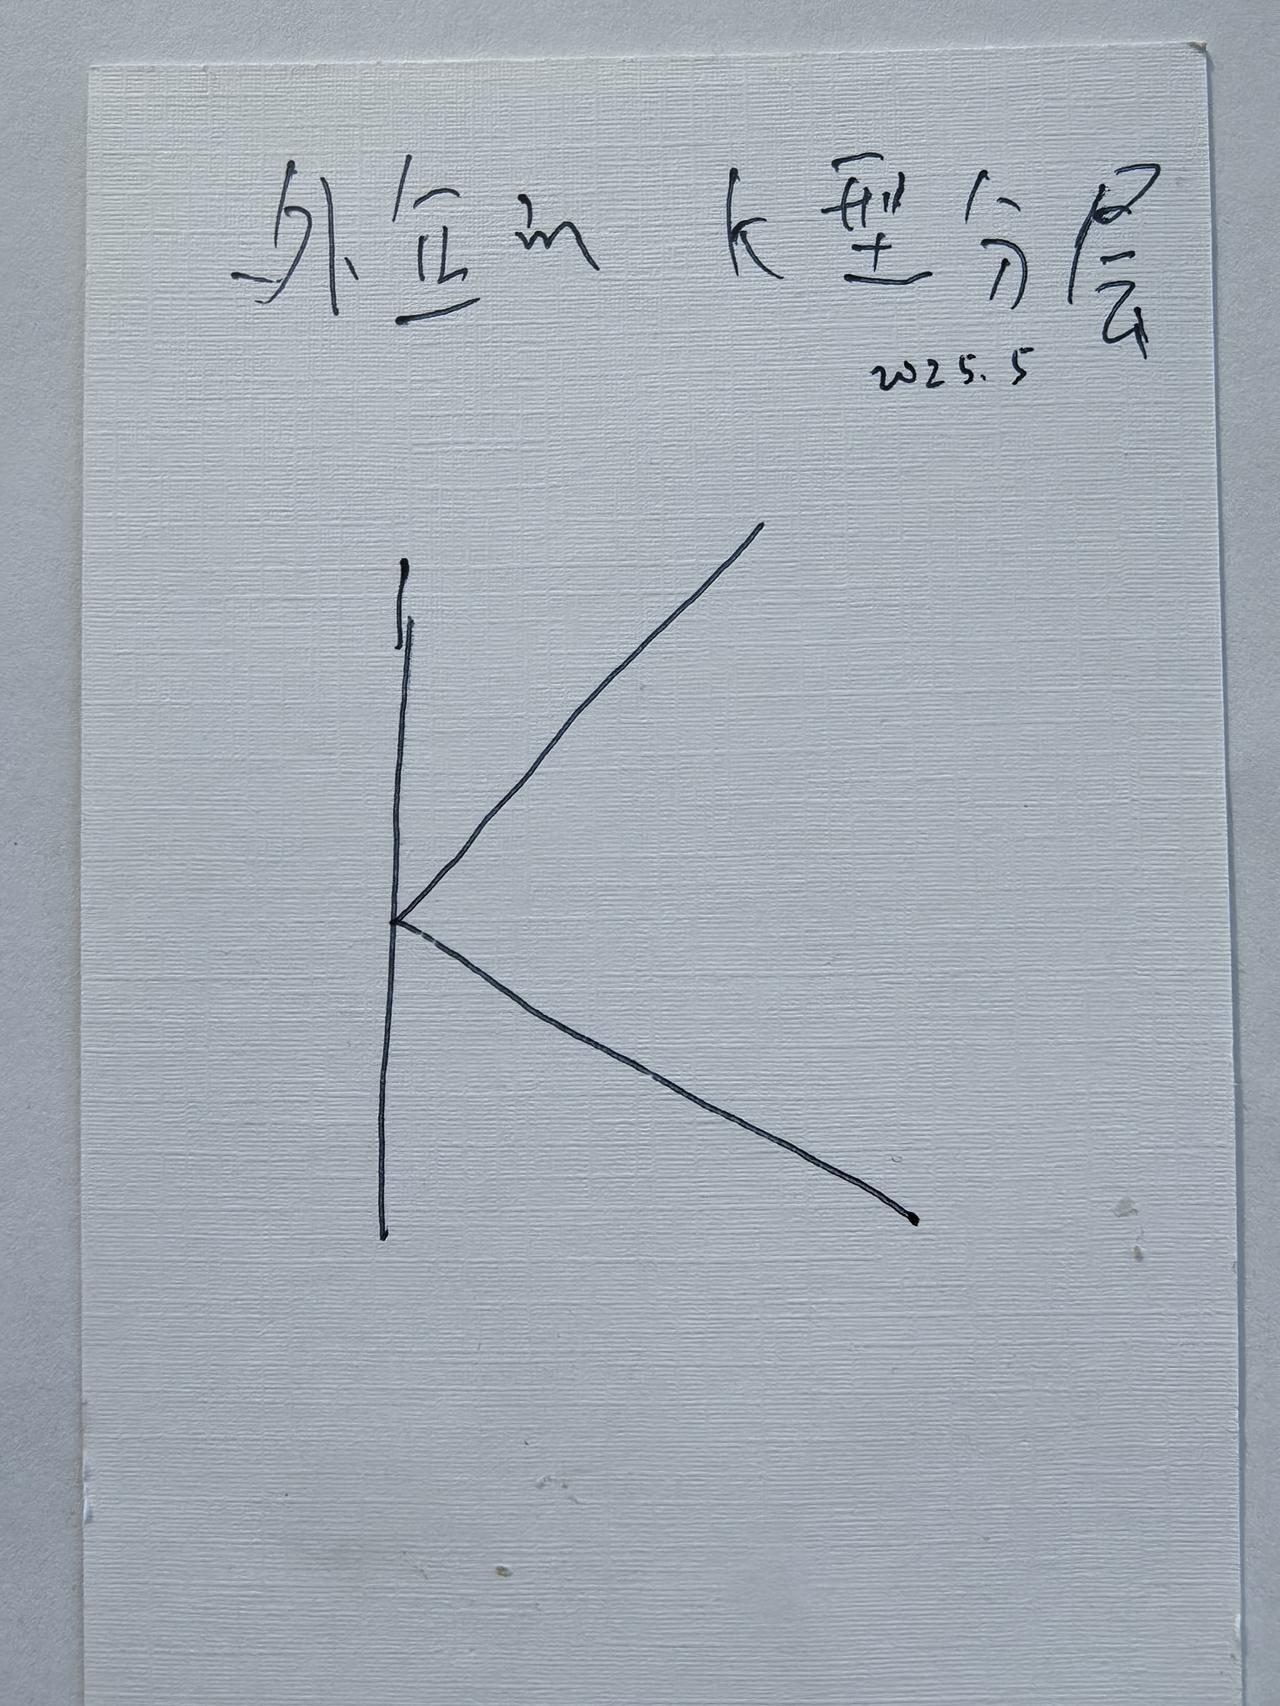 外企的 K型分层
2025.5
K